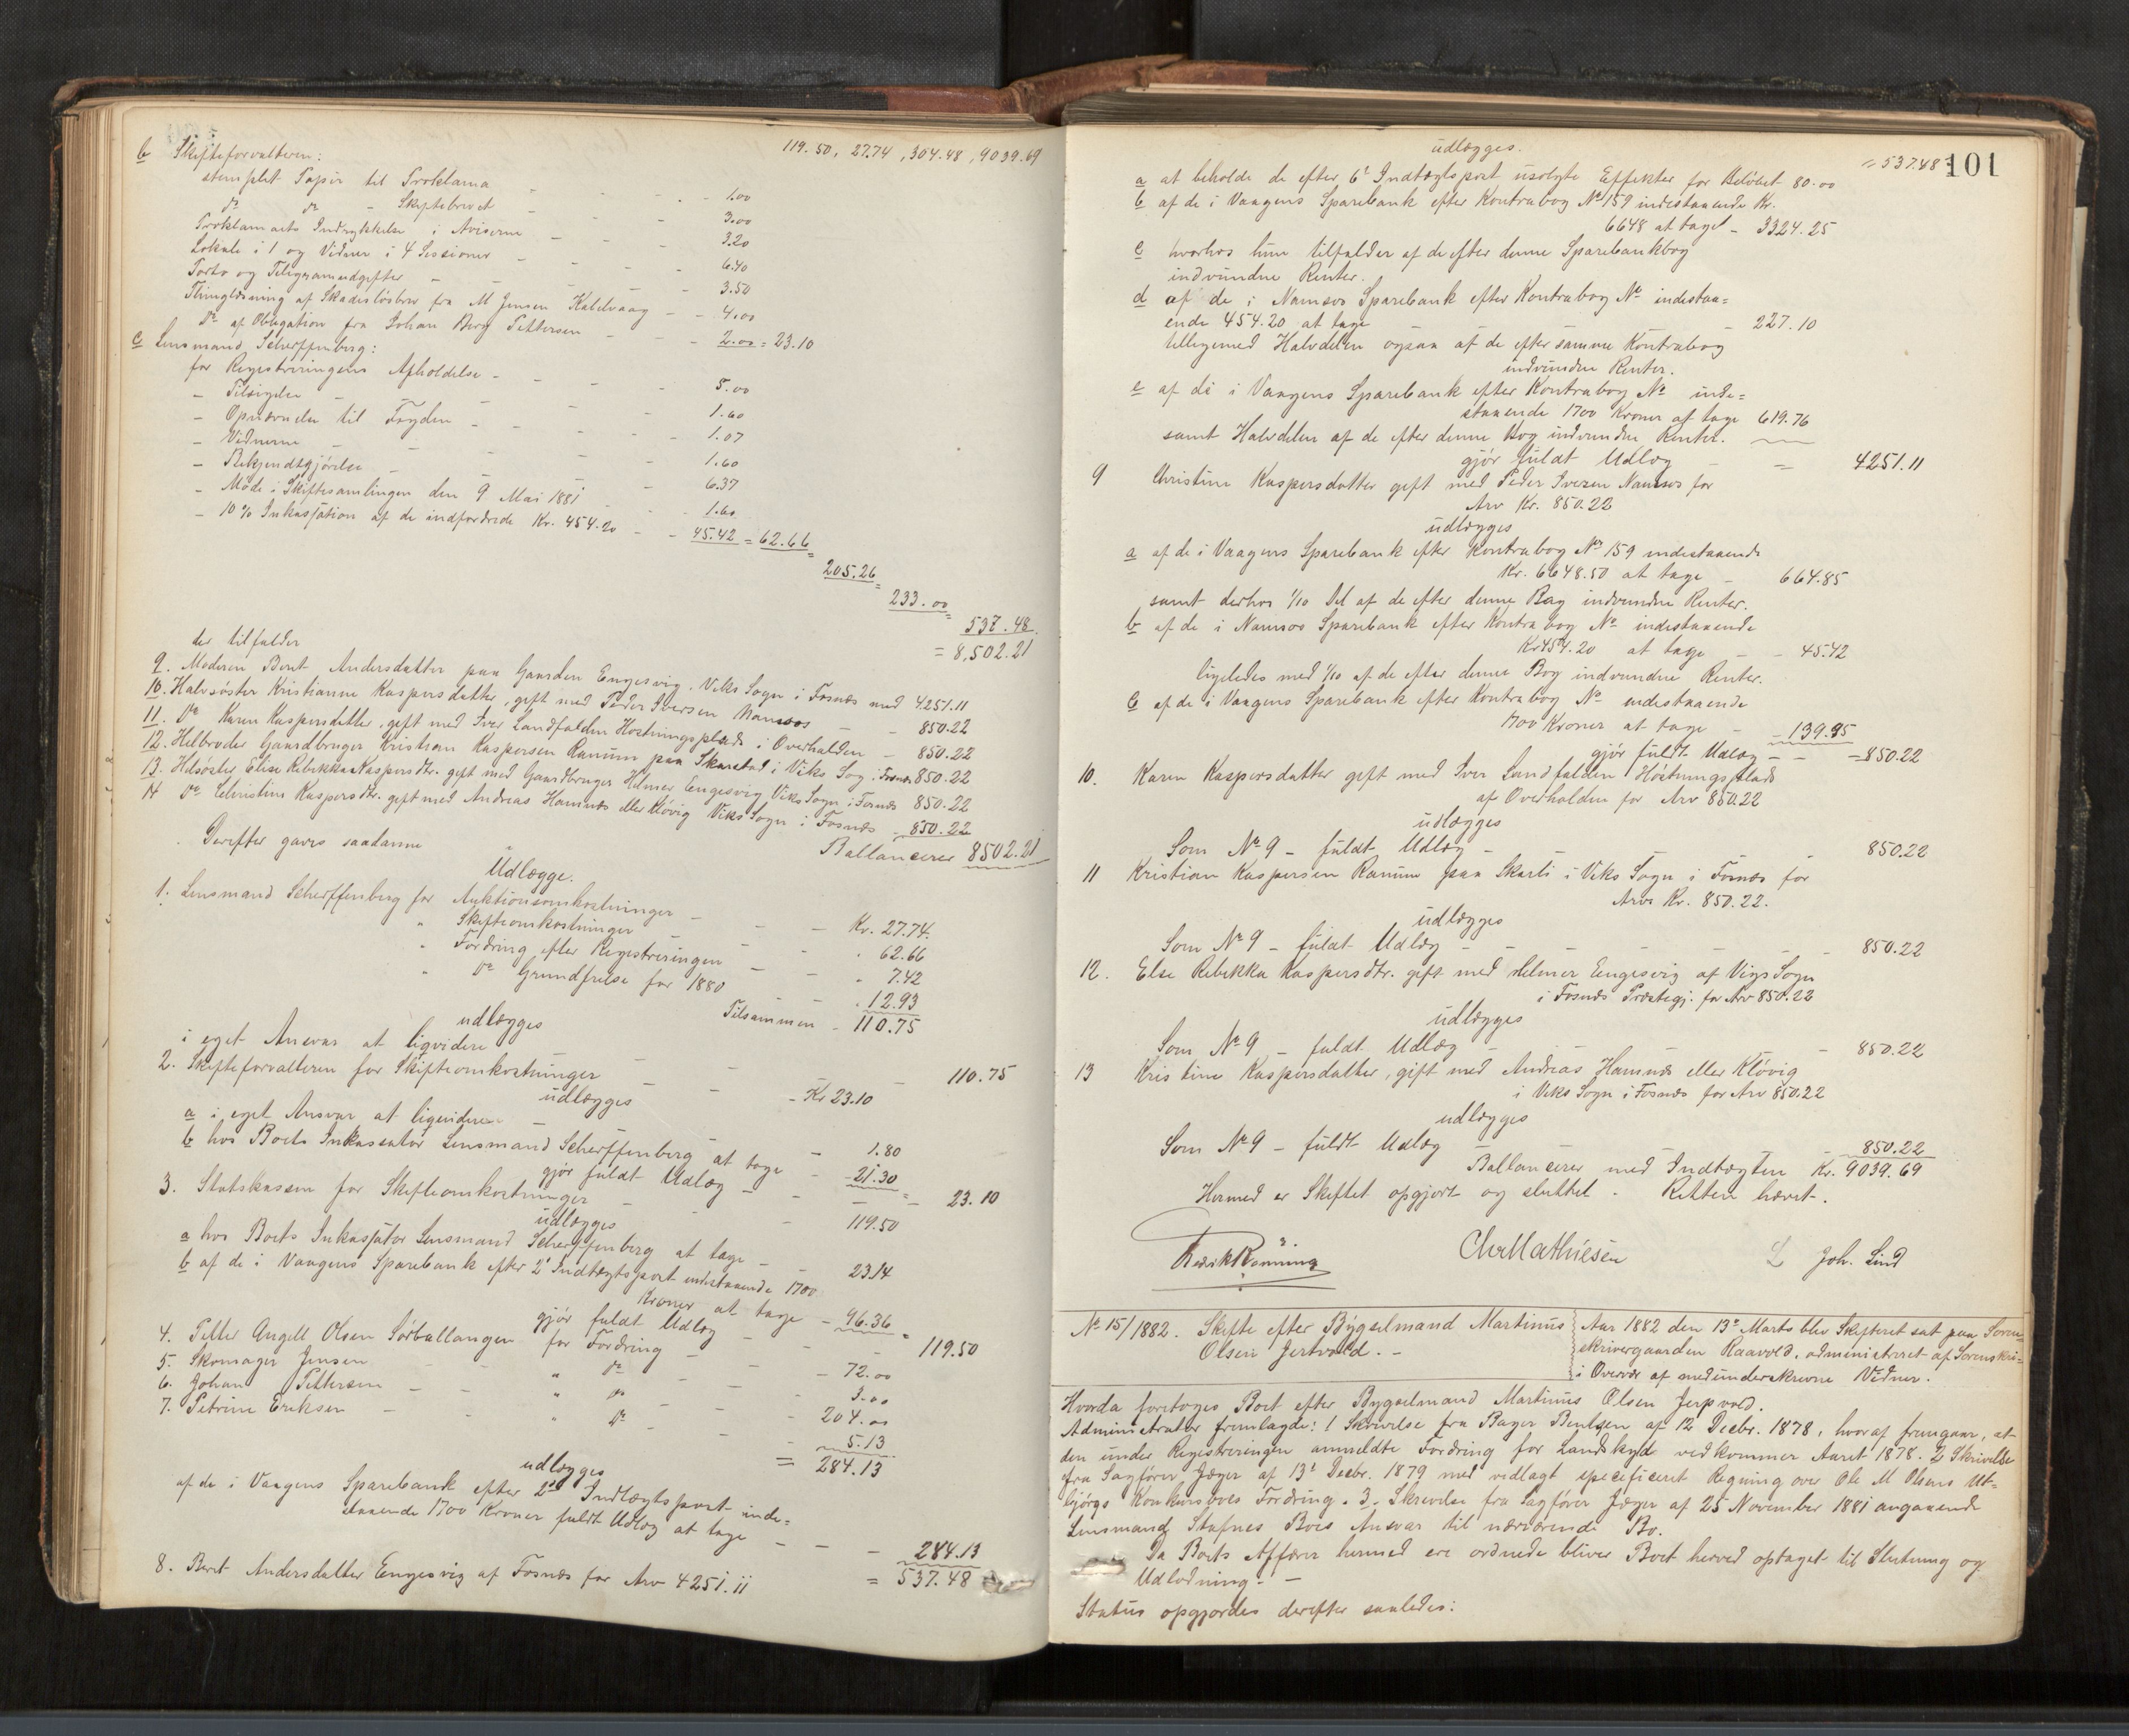 119.50, 27.74, 304.48, 9039.69
b Skifteforvalteren:
stemplet Papir til Proklama - - - 1.00
do do - Skiftebrevet - - - 3.00
Proklamaets Indrykkelse i Aviserne - - - 3.20
Lokale i 1 og Vidner i 4 Sessioner - - - 6.40
Porto og Telegramudgifter - - - 3.50
Thinglæsning af Skadesløsbrev fra M Jensen Kalvaag - - 4.00
do af Obligation fra Johan Berg Pettersen - - 2.00 = 23.10
c Lensmand Scherffenberg:
for Registreringens Afholdelse - - - 5.00
- Tilsigelse - - - 1.60
- Opnævnelse til Fogden - - - 1.07
- Vidnerne - - - 1.60
- Bekjendtgjørelse - - - 6.37
- Møde i Skiftesamlingen den 9 Mai 1881 - 1.60
- 10 % Inkassation af de indfordrede Kr. 454.20 - - 45.42 = 62.66
205.26
233.00
537.48
= 8,502.21
der tilfalder
9. Moderen Berit Andersdatter paa Gaarden Engesvig, Viks Sogn i Fosnæs med 4251.11
10. Halvsøster Kristianne Kaspersdatter, gift med Peder Iversen Namsos - 850.22
11. do Karen Kaspersdatter, gift med Iver Landfalden Høstningsplads i Overhalden - 850.22
12. Helbroder Gaardbruger Kristian Kaspersen Ranum paa Skarstad i Viks Sog. i Fosnæs 850.22
13. Helsøster Elise Rebekka Kaspersdtr. gift med Gaardbruger Helmer Engesvig Viks Sogn i Fosnæs 850.22
14 do Christine Kaspersdtr. gift med Andreas Hamnæs eller Kløvig Viks Sogn i Fosnæs - 850.22
Ballancerer 8502.21
Derefter gaves saadanne
Udlægge.
1. Lensmand Scherffenberg for Auktionsomkostninger - - - Kr. 27.74.
" Skifteomkostninger - - - " 62.66
" Fordring efter Registreringen - - " 7.42
" do Grundfrelse for 1880 - - " 12.93
Tilsammen - 110.75
udlægges
i eget Ansvar at liqvidere - - - 110.75
2. Skifteforvalteren for Skifteomkostninger - - Kr 23.10
udlægges
a i eget Ansvar at liqvidere - - 1.80
b hos Boets Inkassator Lensmand Scherffenberg at tage - 21.30
gjør fuldt Udlæg - - = 23.10
3. Statskassen for Skifteomkostninger - - 119.50
udlægges
a hos Boets Inkassator Lensmand Scherffenberg at tage - 23.14
b af de i Vaagens Sparebank efter 2' Indtægtspost indestaaende 1700
Kroner at tage - 96.36
gjør fuldt Udlæg - = 119.50
4. Petter Angell Olsen Sørballangen for Fordring - - 72.00
5. Skomager Jensen " do - - 3.00
6. Johan Pettersen - " do - - 204.00
7. Petrine Eriksen - " do - - 5.13
= 284.13
udlægges
af de i Vaagens Sparebank efter 2den Indtægtspost inde=
staaende 1700 Kroner fuldt Udlæg at tage - - - 284.13
= 537.48
8. Berit Andersdatter Engesvig af Fosnæs for Arv 4251.11
101
= 537.48
udlægges.
a at beholde de efter 6te Indtægtspost usolgte Effekter for Beløbet 80.00
b af de i Vaagens Sparebank efter Kontrabog No 159 indestaaende Kr.
6648 at tage - 3324.25
c hvorhos hun tilfalder af de efter denne Sparebankbog
indvundne Renter.
d af de i Namsos Sparebank efter Kontrabog No indestaa=
ende 454.20 at tage - 227.10
tilligemed Halvdelen ogsaa af de efter samme Kontrabog
indvundne Renter.
e af de i Vaagens Sparebank efter Kontrabog No inde=
staaende 1700 Kroner at tage 619.76
samt Halvdelen af de efter denne Bog indvundne Renter.
gjør fuldt Udlæg - = 4251.11
9 Christine Kaspersdatter gift med Peder Iversen Namsos for
Arv Kr. 850.22
udlægges
a af de i Vaagens Sparebank efter Kontrabog No 159 indestaaende
Kr. 6648.50 at tage - 664.85
samt derhos 1/10 Del af de efter denne Bog indvundne Renter.
b af de i Namsos Sparebank efter Kontrabog No indestaaende
Kr 454.20 at tage - - 45.42
ligeledes med 1/10 af de efter denne Bog indvundne Renter.
c af de i Vaagens Sparebank efter Kontrabog No indestaaende
1700 Kroner at tage - - 139.95
gjør fuldt Udlæg - - = 850.22
10. Karen Kaspersdatter gift med Iver Landfalden Høstningsplads
af Overhalden for Arv 850.22
udlægges
Som No 9 - fuldt Udlæg - - 850.22
11 Kristian Kaspersen Ranum paa Skarsti i Viks Sogn i Fosnæs for
Arv Kr. 850.22.
udlægges
Som No 9 - fuldt Udlæg - - - - 850.22
12. Else Rebekka Kaspersdtr. gift med Helmer Eengesvig af Vigs Sogn
i Fosnæs Præstegj. for Arv 850.22
udlægges
Som No 9 - fuldt Udlæg - - 850.22
13 Kristine Kaspersdatter, gift med Andreas Hamnæs eller Kløvig
i Viks Sogn i Fosnæs for Arv 850.22
udlægges
Som No 9 - fuldt Udlæg - 850.22
Ballancerer med Indtægten Kr. 9039.69
Hermed er Skiftet opgjort og sluttet. Retten hævet.
Fredrik Rønning Chr Mathiesen L Joh. Lind
No 15/1882. Skifte efter Bygselmand Martinus
Olsen Jertvold. -
Aar 1882 den 13de Marts blev Skifteret sat paa Soren=
skrivergaarden Raavold, administreret af Sorenskri=
i Overvær af medunderskrevne Vidner.
Hvorda foretoges Boet efter Bygselmand Martinus Olsen Jerpvold.
Administrator fremlagde: 1 Skrivelse fra Bager Bentzen af 12 Decbr. 1878, hvoraf fremgaar, at
den under Registreringen anmeldte Fordring for Landskyld vedkommer Aaret 1878. 2 Skrivelse
fra Sagfører Jæger af 13de Decbr. 1879 med vedlagt specificeret Regning over Ole M Olsens Ut=
bjørgs Konkursboes Fordring. 3. Skrivelse fra Sagfører Jæger af 25 November 1881 angaaende
Lensmand Stafnes Boes Ansvar til nærværende Bo.
Da Boets Affærer hermed ere ordnede bliver Boet herved optaget til Slutning og
Udlodning. -
Status opgjordes derefter saaledes: